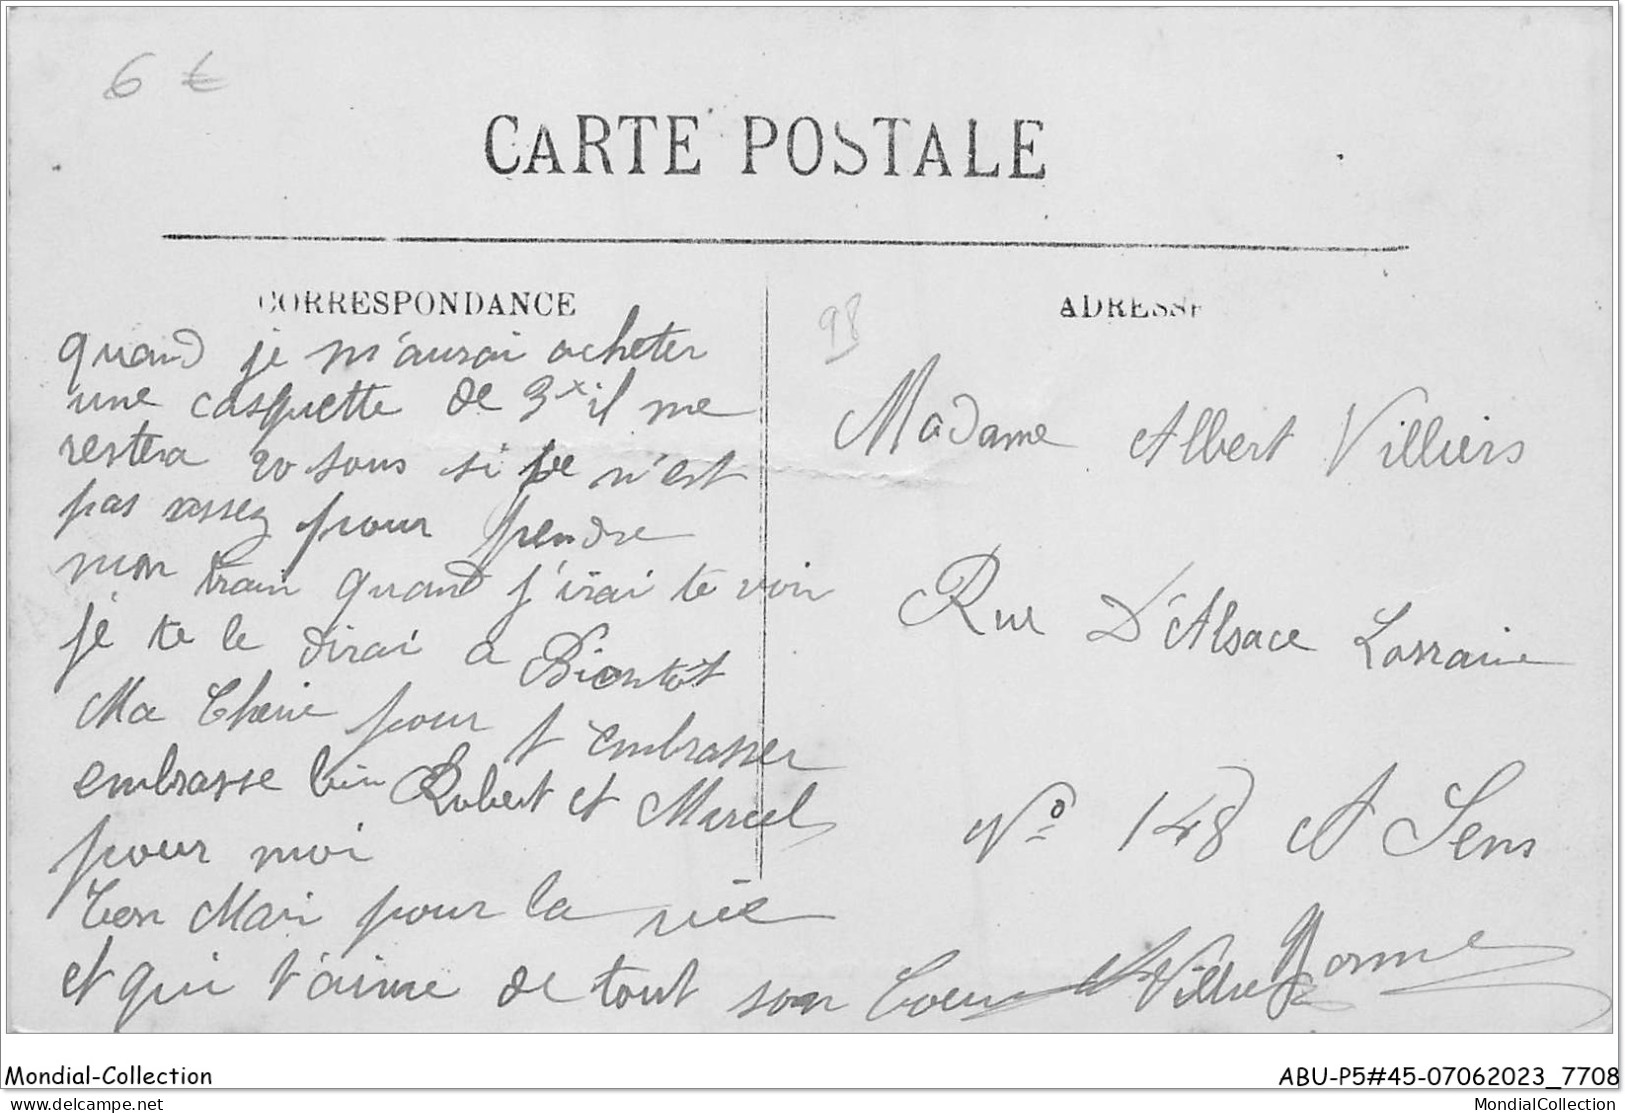 6 €
CARTE POSTALE
CORRESPONDANCE
quand je m'aurai acheter
une casquette de 3x il me
restera 20 sous si ce n'est
pas assez pour pendre
mon train quand j'irai te voir
je te le dirai a Bientôt
Ma Cherie pour t'embrasser
embrasse bien Robert et Marcel
pour moi
Ton Mari pour la vie
et qui t'aime de tout son Coeur A Villiers
98
ADRESSE
Madame Albert Villiers
Rue D'Alsace Lorraine
No 148 A Sens
Yonne
Mondial-Collection
ABU-P5#45-07062023_7708
delcampe.net
MondialCollection